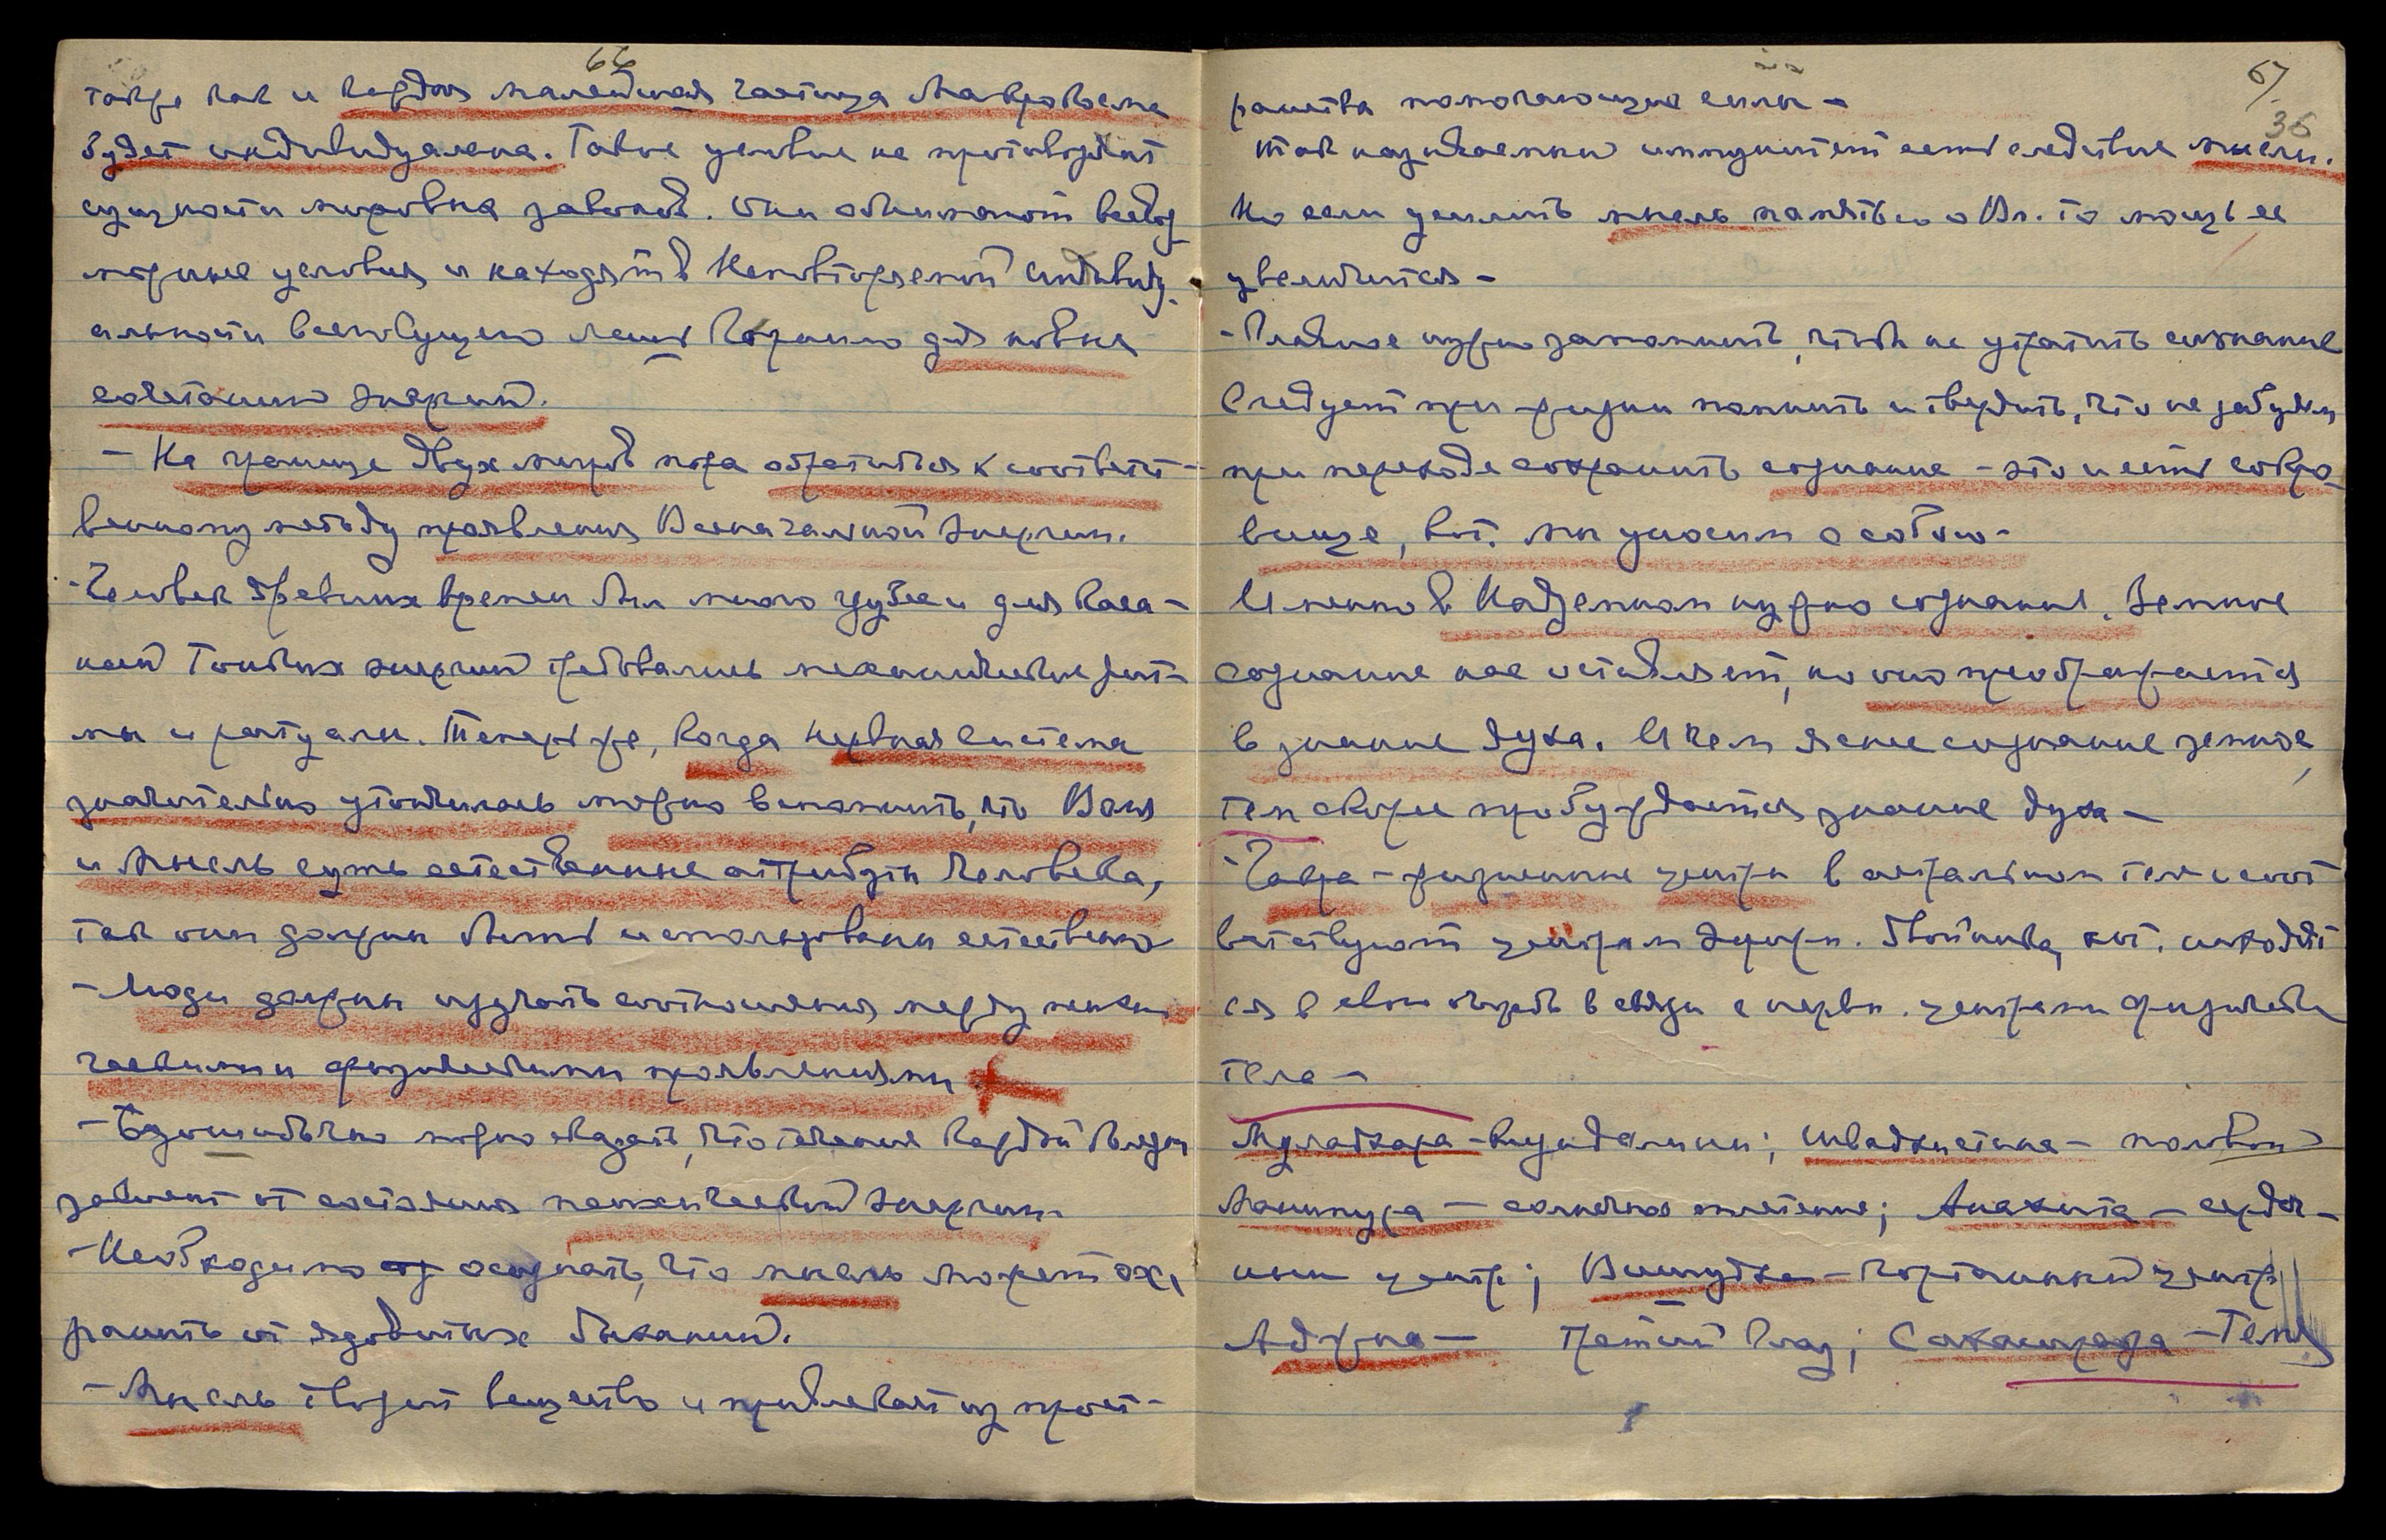 66
также как и каждая малейшая частица Макрокосма
будет индивидуальна. Такое условие не противоречит
сущности мировых законов. Они обнимают всевоз
можные условия и находят в Неповторяемой индивиду
альности всемогущую лишь горнило для новых
сочетаний энергий.
- На границе двух миров пора обратиться к соответст-
венному методу проявления Всеначальной Энергии.
- Человек древних времен был много грубее и для каса-
ний Тонких энергий требовались механические рит-
мы и ритуалы. Теперь же, когда нервная система
значительно утончилась можно вспомнить, что Воля
и Мысль суть естественные аттрибуты Человека,
так они должны быть использованы естественно
- Люди должны изучать соотношения между психи
ческими и физическими проявлениями
- Безошибочно можно сказать, что течение каждой болезни
зависит от состояния психической энергии
- Необходимо осознать, что мысль может ох,
ранить от ядовитых дыханий.
- Мысль творит вещество и привлекает из прост-
67.
36
ранства помогающие силы -
Так называемый иммунитет есть следствие мысли.
Но если усилить мысль памятью о Вл. то мощь ее
увеличится -
- Главное нужно запомнить, чтоб не утратить сознание
Следует при жизни помнить и твердить, что не забудем
при переходе сохранить сознание - это и есть сокро
вище, кот. мы уносим с собою -
Именно в Надземном нужно сознание. Земное
сознание нас оставляет, но оно преображается
в знание духа. И чем яснее сознание земное,
тем скорее пробуждается знание духа -
- Чакра - жизненные центры в астральном теле и соот
ветствуют центрам эфирн. Двойника, кот. находят
ся в свою очередь в связи с нервн. центрами физическ
тела -
Муладхара - кундалини; Свадхистана - половой
Манипура - солнечное сплетение; Анахата - сердеч-
ный центр; Вишудха - гортанный центр
Аджна - третий глаз; Сахасрара - Темя